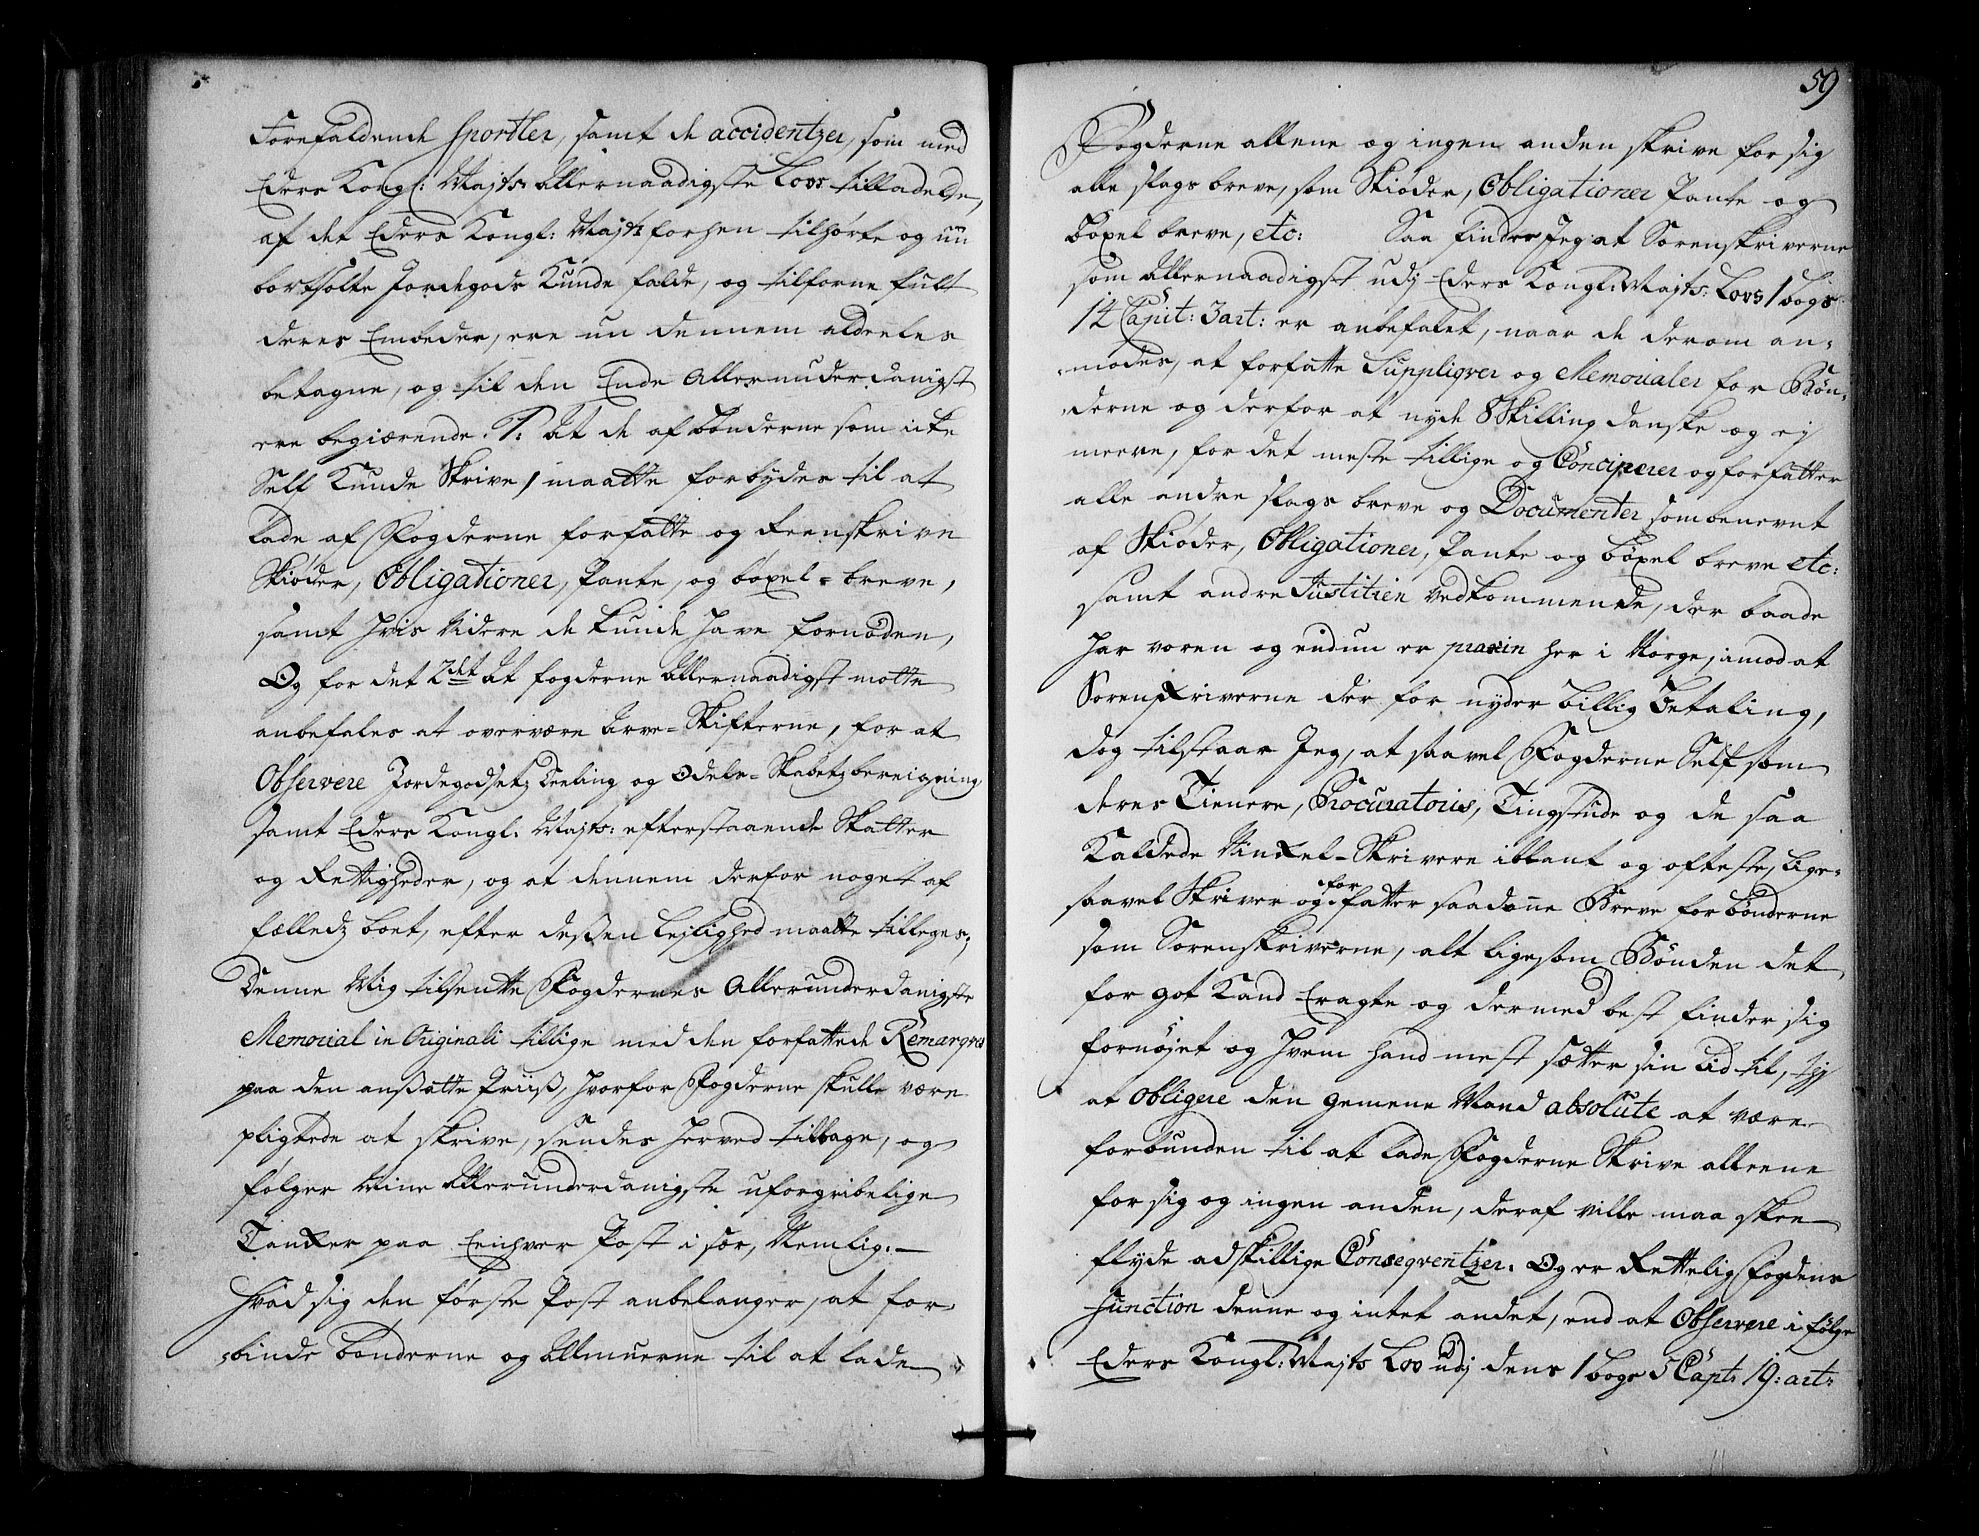 Forefaldende Sportler, samt de accidentzer, som med
Eders Kongl: Mayts: Allernaadigste Lovs tilladelse,
af det Eders Kongl: Mayts forhen tilhørte og nu
bortsolte Jordegods kunde falde, og tilforne fult
deres Embeder, ere nu dennem aldeeles
betagne, og til den Ende Allerunderdanigst
ere begiærende. 1: At de af bønderne som icke
Self kunde Skrive / maatte forbydes til at
lade af Fogderne forfatte og Reenskrive
Skiøder, Obligationer, Pante, og böxel-breve,
samt hvis Videre de kunde have fornøden,
Og for det 2det At fogderne Allernaadigst motte
anbefales at overvære Arve-Skifterne, for at
Observere Jordegodsetz deeling og Odels-Skabetz bereigning
samt Eders Kongl: Mayts: efterstaaende Skatter
og Rettigheder, og at dennem derfor noget af
fælledz boet, efter dessen leylighed maatte tilleges;
Denne Mig tilsendte Fogdernes Allerunderdanigste
Memorial in Originali tillige med den forfattede Remarqve
paa den ansatte Priiss, hvorfor Fogderne skulle være
pligtede at skrive, sendes herved tilbage, og
følger Mine Allerunderdanigste uforgribelige
Tanker paa Eenhver Post i sær, Nemlig:
Hvad sig den første Post anbelanger, at for-
binde bønderne og Allmuerne til at lade
59
Fogderne allene og ingen anden skrive for sig
alle slags breve, som Skiøder, Obligationer Pante og
böxel breve, etc: Saa finder Jeg at Sorenskriverne
som Allernaadigst udj Eders Kongl: Mayts: Lovs 1 bogs
12 Capit: 3 art: er anbefalet, naar de derom an-
modes, at forfatte Suppliqver og Memorialer for Bøn-
derne og derfor at nyde 8 Skilling danske og ej
meere, for det meste tillige og Conciperer og forfatter
alle andre slags breve og Documenter som benevnt
af Skiøder, Obligationer, Pante og böxel breve etc:
samt andre Justitien vedkommende, der baade
har voren og endnu er praxin her i Norge, imod at
Sorenskriverne der for nyder billig Betaling,
dog tilstaar Jeg, at saavel Fogderne Self som
deres Tienere, Procuratoris, Tingstude og de saa
kaldede Vinkel-Skrivere iblant og ofteste, lige-
saavel Skriver og forfatter saadanne Breve for bønderne
som Sorenskriverne, alt ligesom Bonden det
for got kand Eragte og dermed best finder sig
fornøjet og hvem hand mest sætter sin Lid til, thj
at Obligere den gemene Mand absolute at være
forbunden til at lade Fogderne Skrive alleene
for sig og ingen anden, deraf ville maa skee
flyde adskillige Conseqventzer. Og er Rettelig Fogdens
function denne og intet andet, end at Observere i følge
Eders Kongl: Mayts Lov udj dens 1 bogs 5 Capt: 19: art: